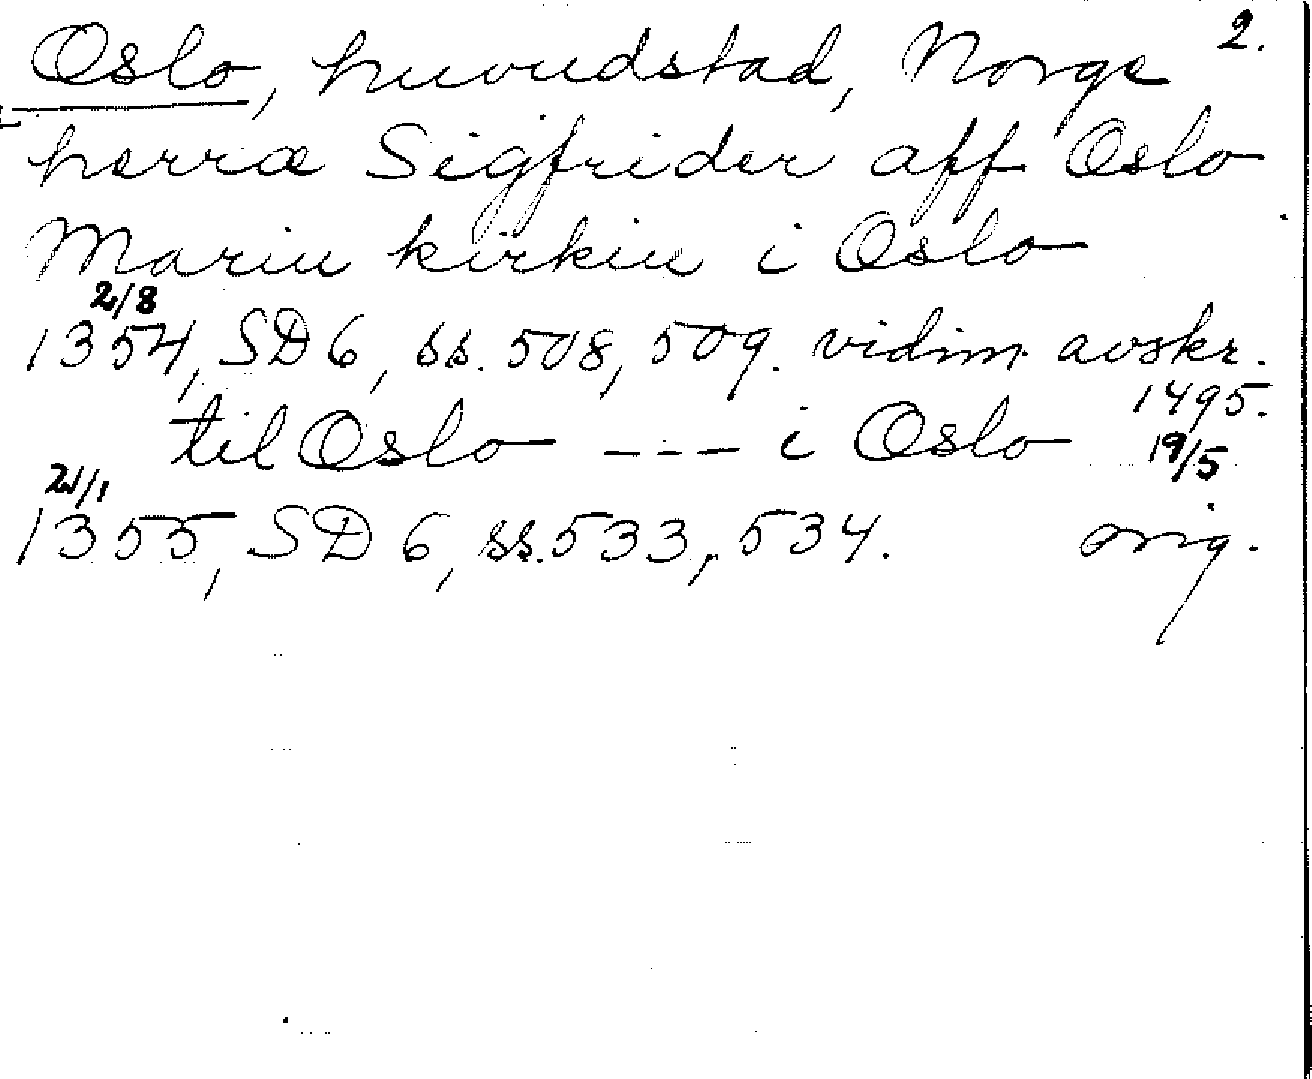 Oslo, huvudstad, Norge 2.
herræ Sigfrider aff Oslo
Mariu kirkiu i Oslo
2/8
1354, SD 6, ss. 508, 509. vidim. avskr.
1495.
til Oslo --- i Oslo 19/5
1355, SD 6, ss. 533, 534. orig.